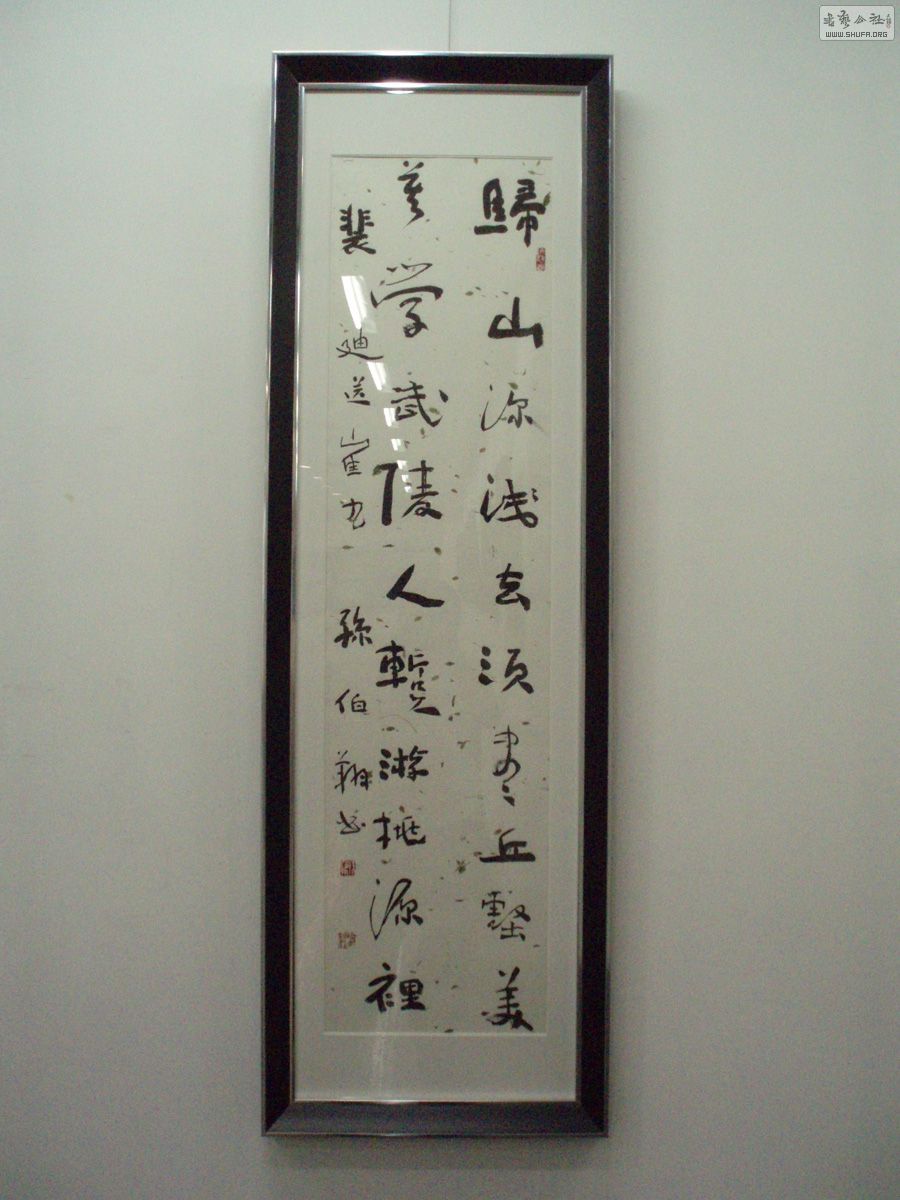 歸山深淺去須盡丘壑美
莫學武陵人暫游桃源裡
裴迪送崔九 孫伯翔書
書藝公社
WWW.SHUFA.ORG